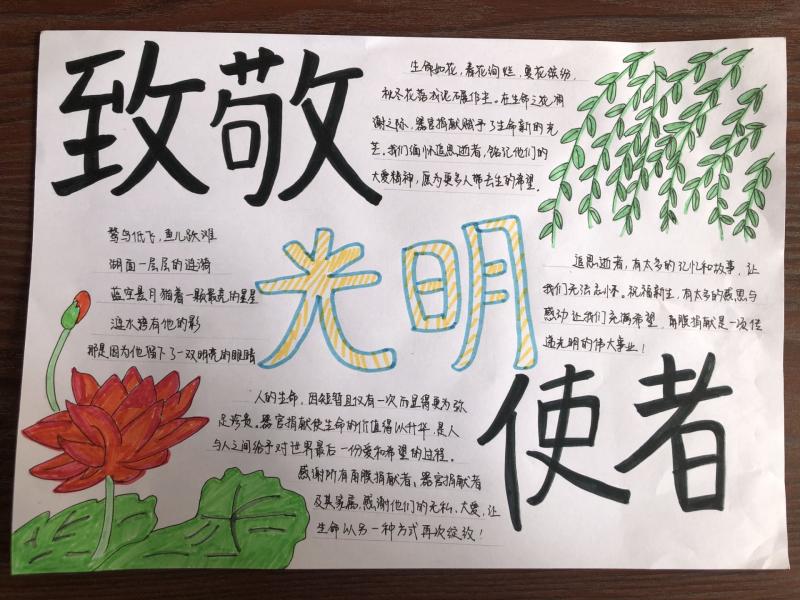 致敬
光明
使者
生命如花,春花绚烂,夏花缤纷,
秋冬花落成泥碾作尘。在生命之花凋
谢之际,器官捐献赋予了生命新的光
芒。我们缅怀追思逝者,铭记他们的
大爱精神,愿为更多人带去生的希望。
鸳鸟低飞,鱼儿跃滩
湖面一层层的涟漪
蓝空悬月 猫着一颗最亮的星星
涟水旁有他的影
那是因为他留下了一双明亮的眼睛
追思逝者,有太多的记忆和故事,让
我们无法忘怀。祝福新生,有太多的感恩与
感动让我们充满希望,角膜捐献是一次传
递光明的伟大事业!
人的生命,因短暂且仅有一次而显得更为弥
足珍贵。器官捐献使生命的价值得以升华,是人
与人之间给予对世界最后一份爱和希望的过程。
感谢所有角膜捐献者、器官捐献者
及其家属,感谢他们的无私、大爱,让
生命以另一种方式再次绽放!